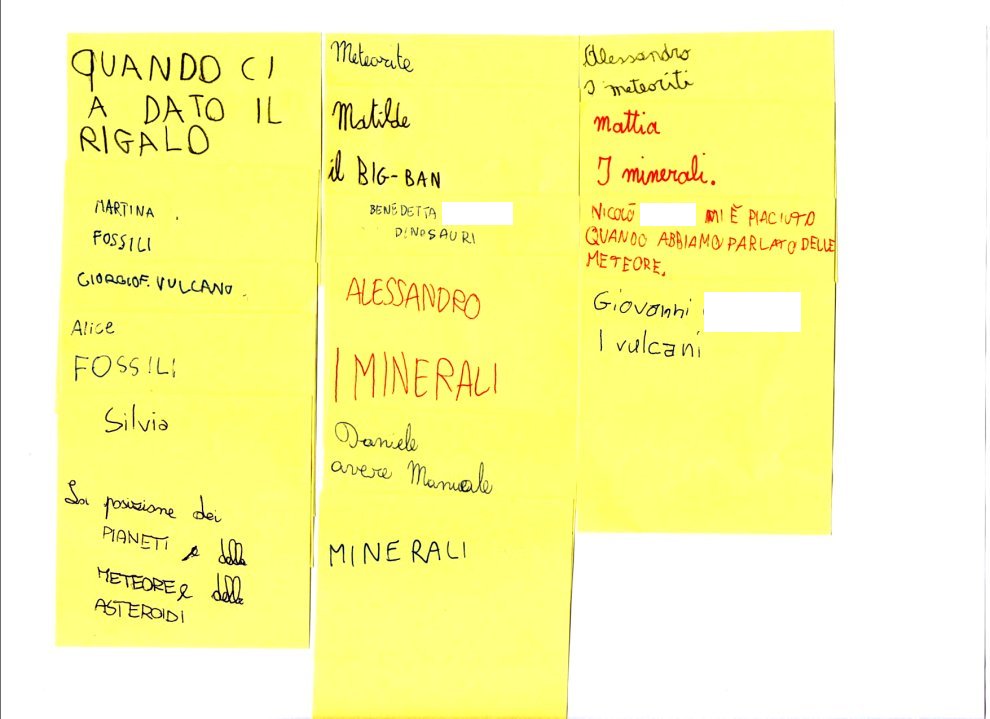 QUANDO CI
A DATO IL
RIGALO
MARTINA.
FOSSILI
GIORGIO F. VULCANO.
Alice
FOSSILI
Silvia
La posizione dei
PIANETI e delle
METEORE e delle
ASTEROIDI
Meteorite
Matilde
il BIG-BAN
BENEDETTA
DINOSAURI
ALESSANDRO
I MINERALI
Daniele
avere Manuale
MINERALI
Alessandro
I meteoriti
mattia
I minerali.
NICOLÒ MI È PIACIUTO
QUANDO ABBIAMO PARLATO DELLE
METEORE.
Giovanni
I vulcani